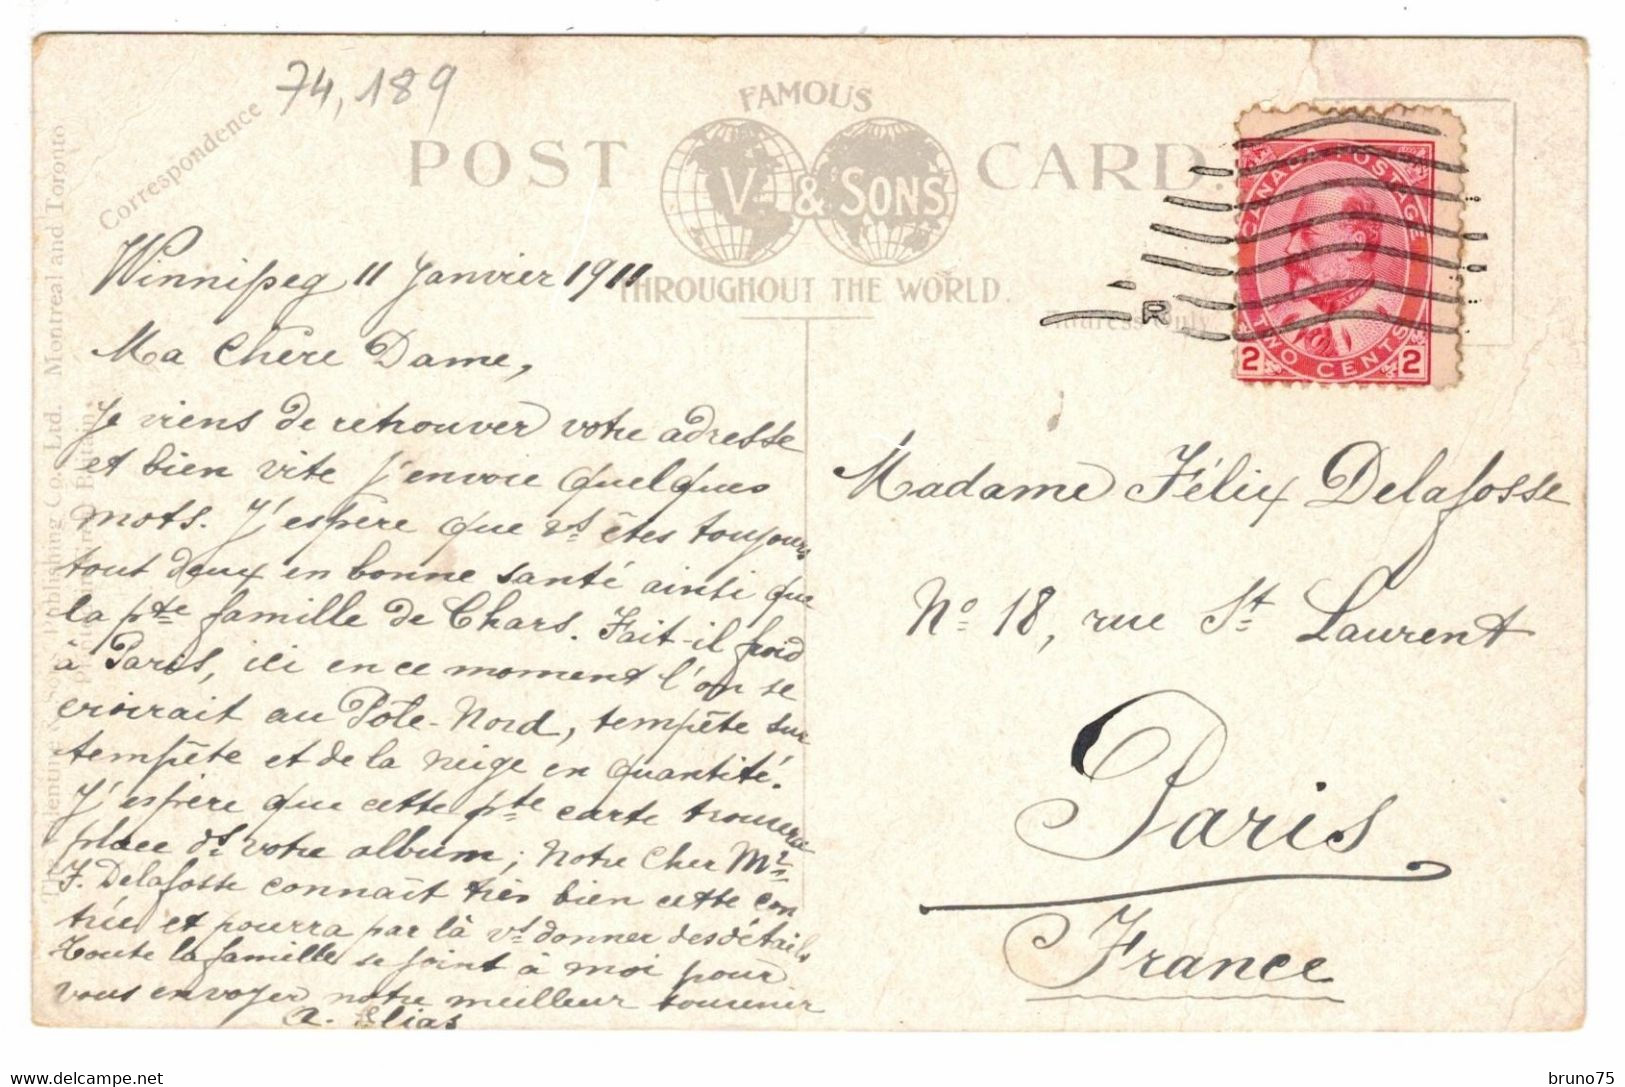 74,189
Correspondence
FAMOUS
POST CARD.
V & SONS
THROUGHOUT THE WORLD.
Address Only
CANADA POSTAGE
2 TWO CENTS 2
R
Winnipeg 11 Janvier 1911
Ma Chère Dame,
Je viens de retrouver votre adresse
et bien vite j'envoie quelques
mots. J'espère que vs êtes toujours
tout deux en bonne santé ainsi que
la pte famille de Chars. Fait-il froid
à Paris, ici en ce moment l'on se
croirait au Pôle-Nord, tempête sur
tempête et de la neige en quantité.
J'espère que cette pte carte trouvera
place ds votre album; Notre Cher Mr
F. Delafosse connaît très bien cette con
trée et pourra par là vs donner des détails
Toute la famille se joint à moi pour
vous envoyer notre meilleur souvenir
A. Elias
Madame Félix Delafosse
No 18, rue St Laurent
Paris
France
Publishing Co. Ltd. Montreal and Toronto
Britain
delcampe.net
bruno75